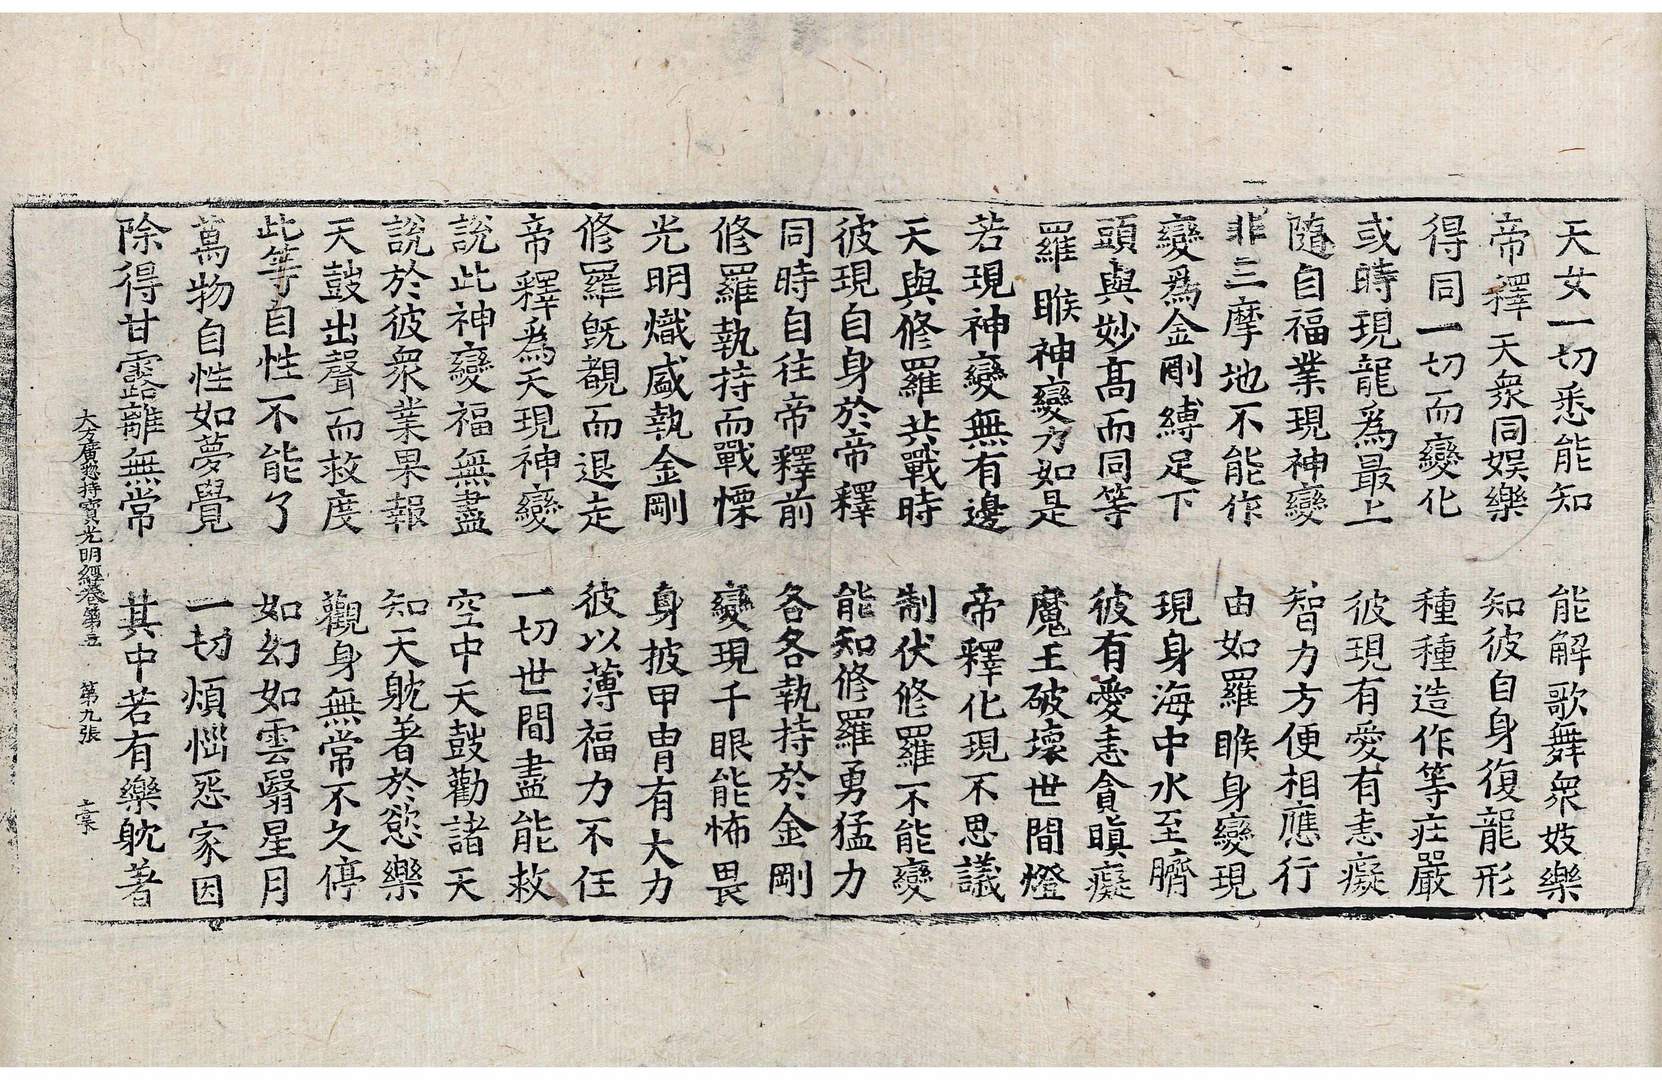 天女一切悉能知　能解歌舞衆妓樂
帝釋天衆同娛樂　知彼自身復龍形
得同一切而變化　種種造作等莊嚴
或時現龍爲最上　彼現有愛有恚癡
隨自福業現神變　智力方便相應行
非三摩地不能作　由如羅睺身變現
變爲金剛縛足下　現身海中水至臍
頭與妙高而同等　彼有愛恚貪瞋癡
羅睺神變力如是　魔王破壞世間燈
若現神變無有邊　帝釋化現不思議
天與修羅共戰時　制伏修羅不能變
彼現自身於帝釋　能知修羅勇猛力
同時自往帝釋前　各各執持於金剛
修羅執持而戰慄　變現千眼能怖畏
光明熾盛執金剛　身披甲胄有大力
修羅旣覩而退走　彼以薄福力不任
帝釋爲天現神變　一切世間盡能救
說此神變福無盡　空中天鼓勸諸天
說於彼衆業果報　知天躭著於慾樂
天鼓出聲而救度　觀身無常不久停
此等自性不能了　如幻如雲翳星月
萬物自性如夢覺　一切煩惱怨家因
除得甘露離無常　其中若有樂躭著
大方廣惣持寶光明經卷第五　第九張